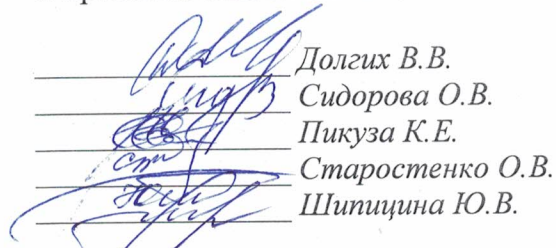 Долгих В.В.
Сидорова О.В.
Пикуза К.Е.
Старостенко О.В.
Шипицина Ю.В.